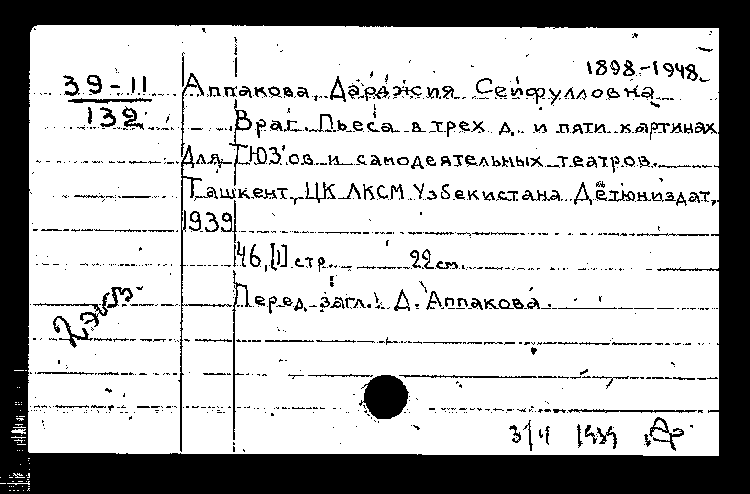 1898-1948
39-11
132
Аппакова, Дарджия Сейфулловна
Враг. Пьеса в трех д. и пяти картинах
для ТЮЗ'ов и самодеятельных театров.
Ташкент, ЦК ЛКСМ Узбекистана Детюниздат,
1939
46, [1] стр. 22 см.
Перед загл.: Д. Аппакова.
2 экз.
3/4 1939